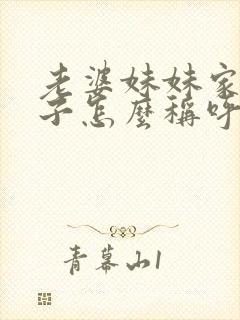 老婆妹妹家
子怎麼稱呼
青幕山1